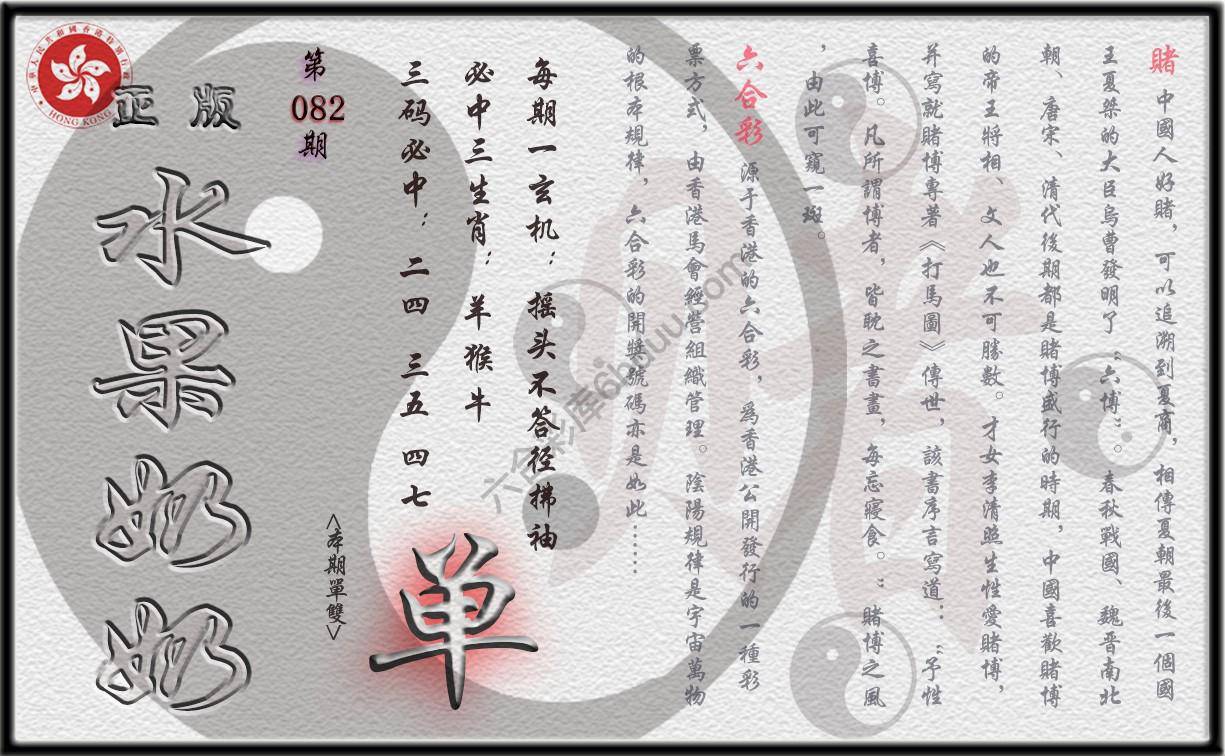 賭 中國人好賭，可以追溯到夏商，相傳夏朝最後一個國
王夏桀的大臣烏曹發明了“六博”。春秋戰國、魏晋南北
朝、唐宋、清代後期都是賭博盛行的時期，中國喜歡賭博
的帝王將相、文人也不可勝數。才女李清照生性愛賭博，
并寫就賭博專著《打馬圖》傳世，該書序言寫道：“予性
喜博。凡所謂博者，皆耽之書畫，每忘寢食。”賭博之風
，由此可窺一斑。
六合彩 源于香港的六合彩，爲香港公開發行的一種彩
票方式，由香港馬會經營組織管理。陰陽規律是宇宙萬物
的根本規律，六合彩的開獎號碼亦是如此……
每期一玄机：摇头不答径拂袖
必中三生肖：羊猴牛
三码必中：二四 三五 四七
单
<本期單雙>
第
082
期
正版
水果奶奶
中華人民共和國香港特別行政區
HONG KONG
六合彩库6hduu.com